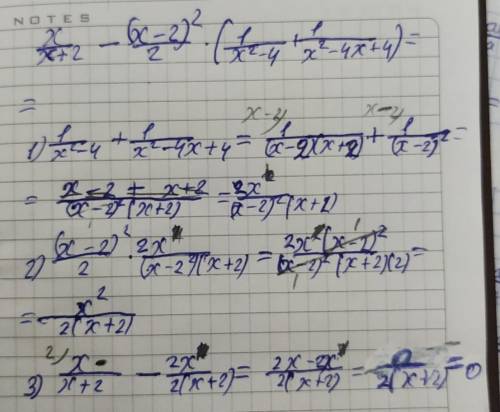 NOTES
x/(x+2) - (x-2)²/2 · (1/(x²-4) + 1/(x²-4x+4)) =
=
1) 1/(x²-4) + 1/(x²-4x+4) = 1/((x-2)(x+2)) + 1/(x-2)² =
= (x-2+x+2)/((x-2)²(x+2)) = 2x/((x-2)²(x+2))
2) (x-2)²/2 · 2x/((x-2²)(x+2)) = 2x(x-2)²/((x-2)²(x+2)(2)) =
= x²/(2(x+2))
3) x/(x+2) - 2x/(2(x+2)) = (2x-2x)/(2(x+2)) = 0/(2(x+2)) = 0